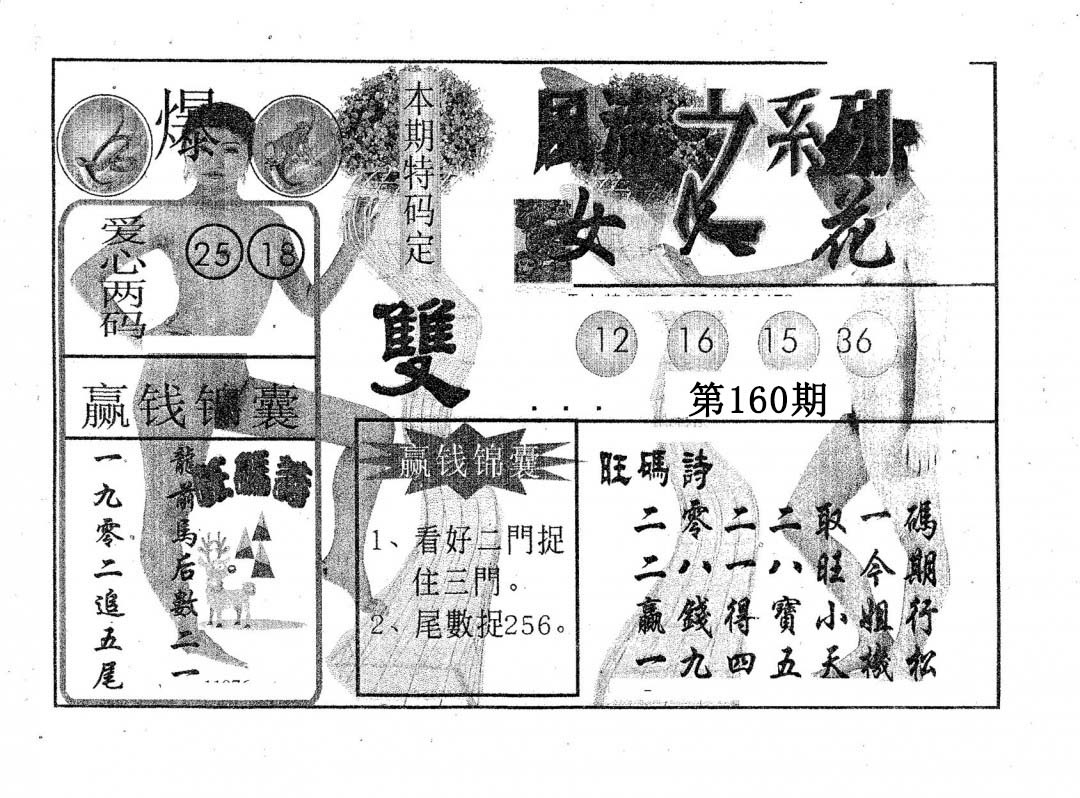 爆
爱心两码
25 18
赢钱锦囊
龍前馬后數二一
一九零二追五尾
旺碼詩
本期特码定
雙
赢钱锦囊
1、看好二門捉
住三門。
2、尾數捉256。
系列
女 花
12 16 15 36
第160期
旺碼詩
二零二二取一碼
二八一八旺今期
贏錢得寶小姐行
一九四五天機松